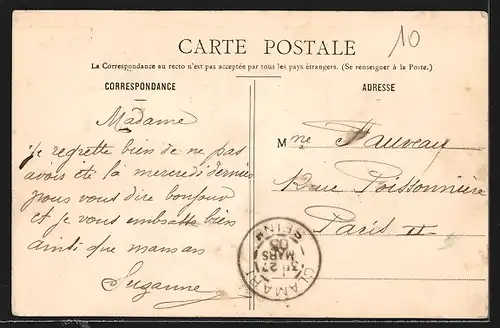 10
CARTE POSTALE
La Correspondance au recto n'est pas acceptée par tous les pays étrangers. (Se renseigner à la Poste.)
CORRESPONDANCE
ADRESSE
Madame
je regrette bien de ne pas
avoir été là mercredi dernier
pour vous dire bonjour
et je vous embrasse bien
ainsi que maman
Suzanne
Mme Fauveau
Rue Poissonnière
Paris II
CLAMART
27
MARS
05
SEINE